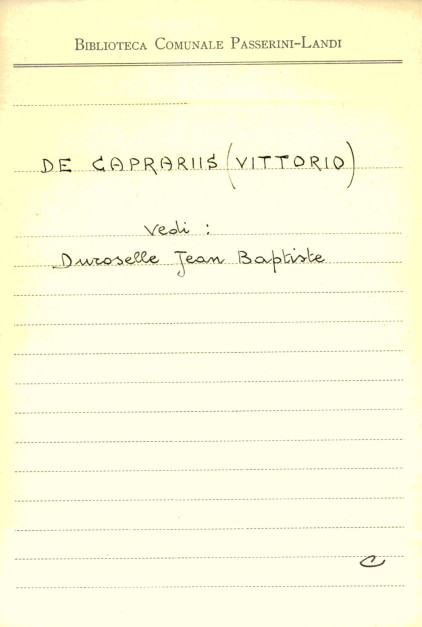 BIBLIOTECA COMUNALE PASSERINI-LANDI
DE CAPRARIIS (VITTORIO)
Vedi :
Duroselle Jean Baptiste
C